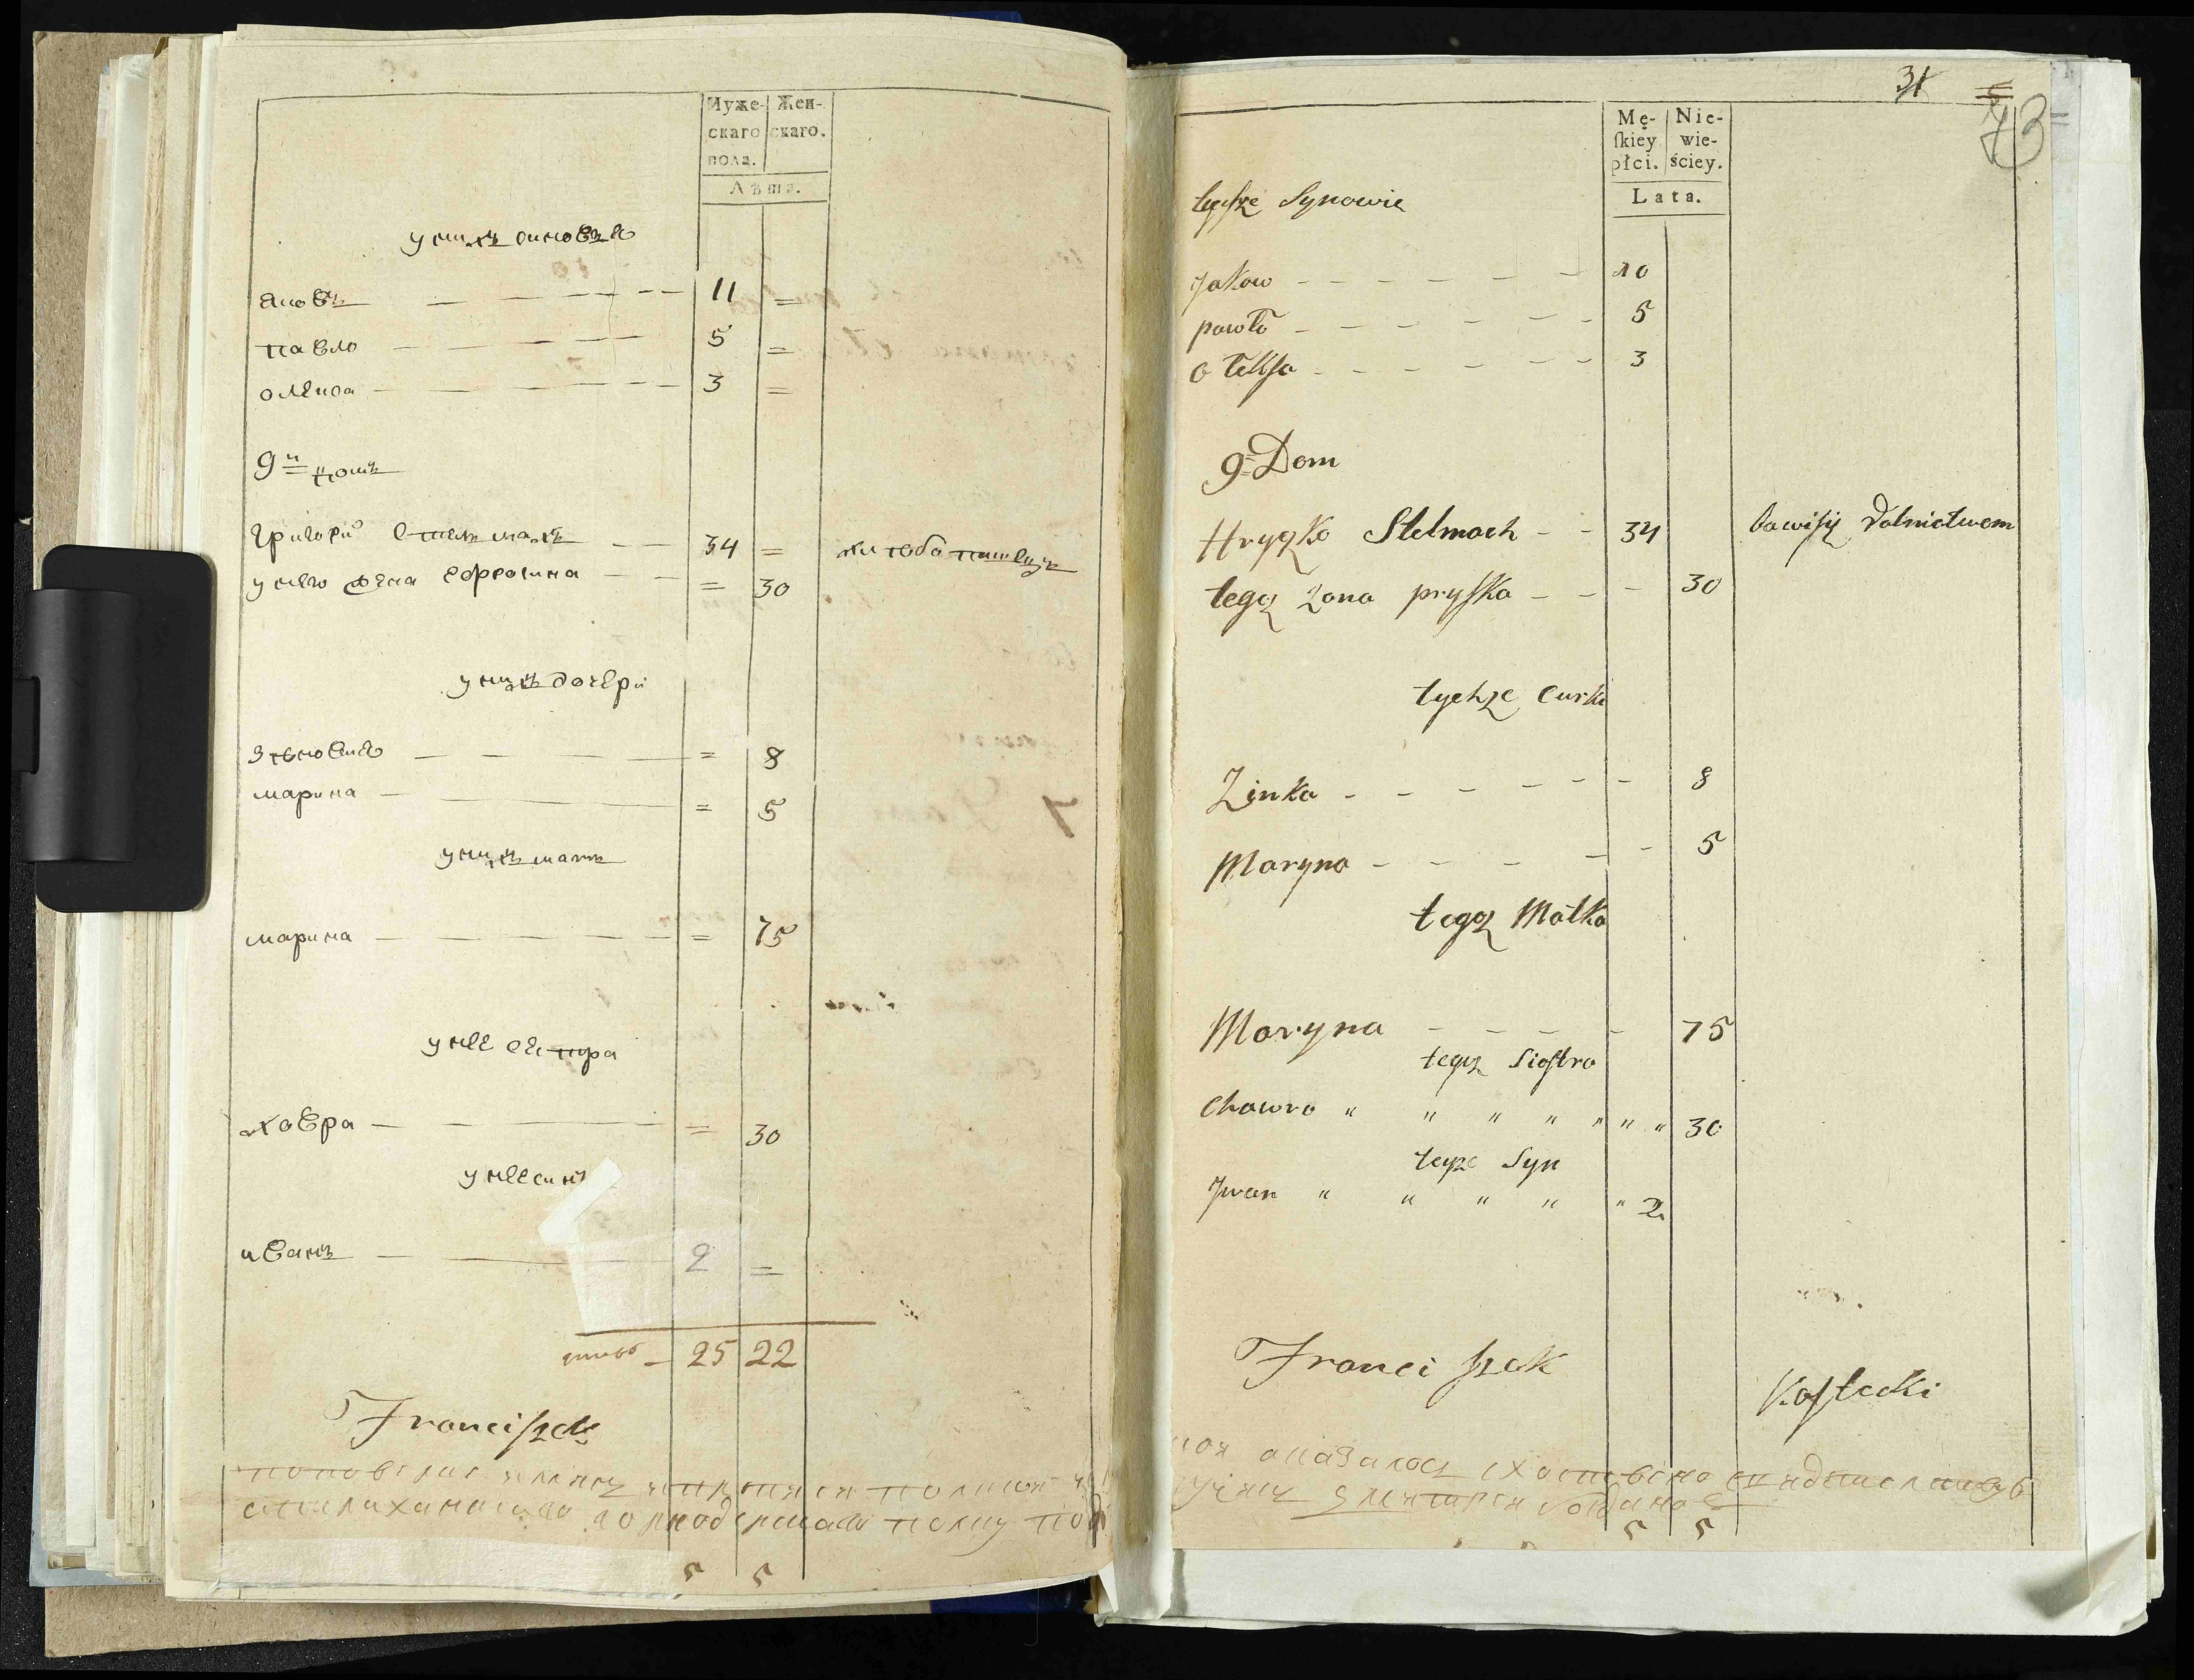 Муже- Жен-
скаго скаго.
пола.
Лѣта.
у нихъ синовья
яковъ — — — — — 11 =
павло — — — — — 5 =
олекса — — — — — 3 =
9й домъ
григорий стелмахъ — — 34 =
у него жена ефросина — — = 30
у нихъ дочери
зѣновия — — — — = 8
марина — — — — = 5
у нихъ мать
марина — — — — = 75
у нее сестра
хавра — — — — = 30
у нее синъ
иванъ — — — 2 =
итого — 25 22
Franciszek
5 5
31
73
Mę- Nie-
ſkiey wie-
płci. ściey.
Lata.
tychże Synowie
Jakow - - - - - - 10
pawło - - - - - - 5
ołeksa - - - - - - 3
9. Dom
Hryczko Stelmach - - 34 bawisię Rolnictwem
tegoż żona pryſka - - - 30
tychże Curki
Zinka - - - - - - 8
Maryna - - - - - 5
tegoż Matka
Maryna - - - - 75
tegoż Sioſtra
Chawra " " " " " " " 30
teyże Syn
Jwan " " " " " 2
Franciſzek Koſtecki
5 5